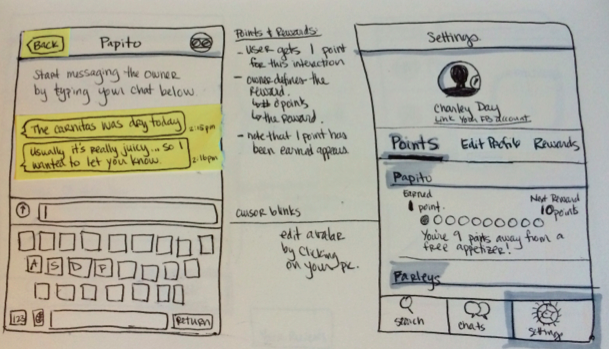 BACK
Papito
Start messaging the owner
by typing your chat below.
The carnitas was dry today
2:15pm
Usually it's really juicy... so I
wanted to let you know.
2:16pm
A S D F
123
Return
Points & Rewards:
- user gets 1 point
for this interaction
- owner defines the
reward.
# points
the reward.
- note that 1 point has
been earned appears
cursor blinks
edit avatar
by clicking
on your pic.
Settings
Charley Day
Link Your FB account
Points
Edit Profile
Rewards
Papito
Earned
1 point.
Next Reward
10 points
You're 9 points away from a
free appetizer!
Parleys
Search
Chats
Settings